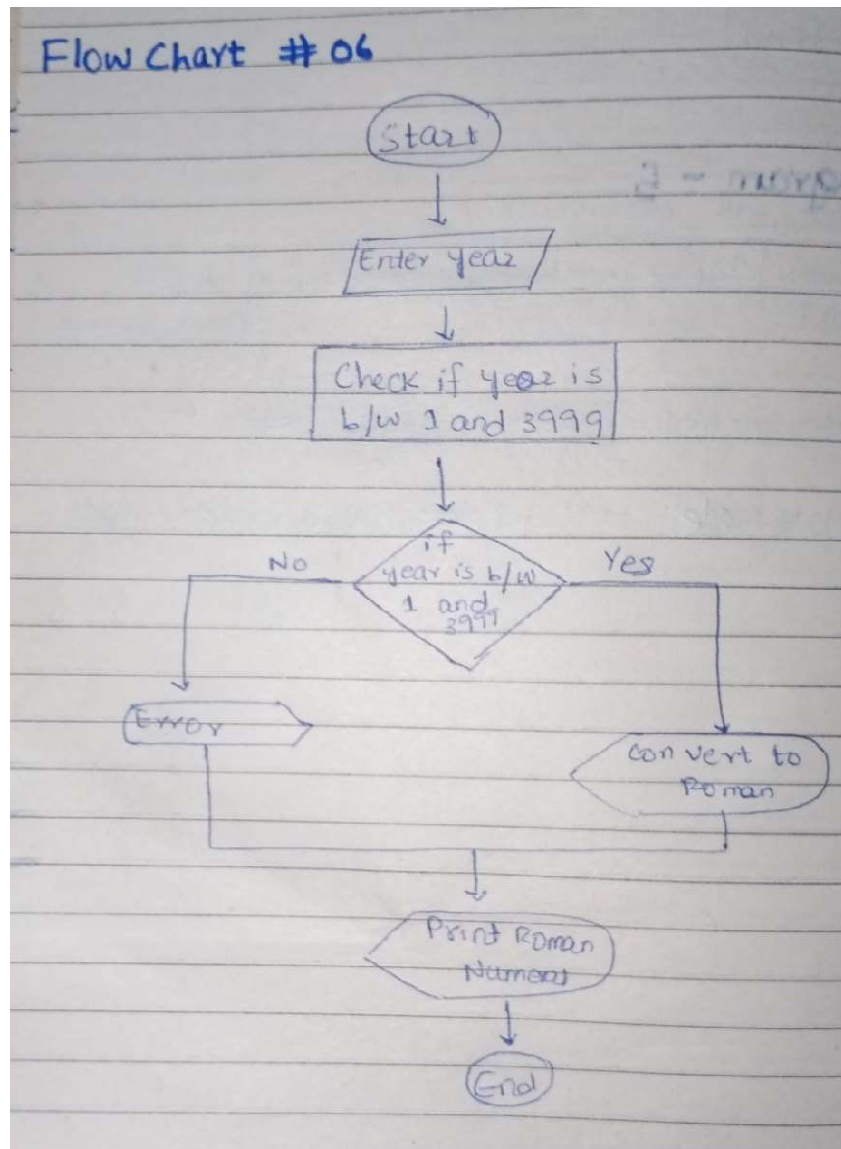 Flow Chart # 06
Start
Enter year
Check if year is
b/w 1 and 3999
if
year is b/w
1 and
3999
No
Yes
Error
convert to
Roman
Print Roman
End